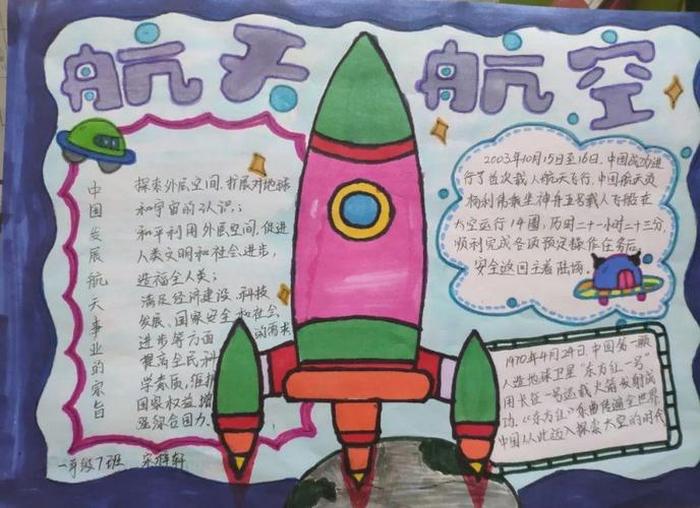 航天航空
中国发展航天事业的宗旨
探索外层空间,扩展对地球
和宇宙的认识;
和平利用外层空间,促进
人类文明和社会进步,
造福全人类;
满足经济建设、科技
发展、国家安全和社会
进步等方面的需求
提高全民科
学素质,维护
国家权益,增
强综合国力.
2003年10月15日至16日,中国成功进
行了首次载人航天飞行.中国航天员
杨利伟乘坐神舟五号载人飞船在
太空运行14圈,历时二十一小时二十三分,
顺利完成各项预定操作任务后,
安全返回主着陆场.
1970年4月24日,中国第一颗
人造地球卫星"东方红一号"
用长征一号运载火箭发射成
功,《东方红》乐曲传遍全世界
中国从此迈入探索太空的时代
一年级7班